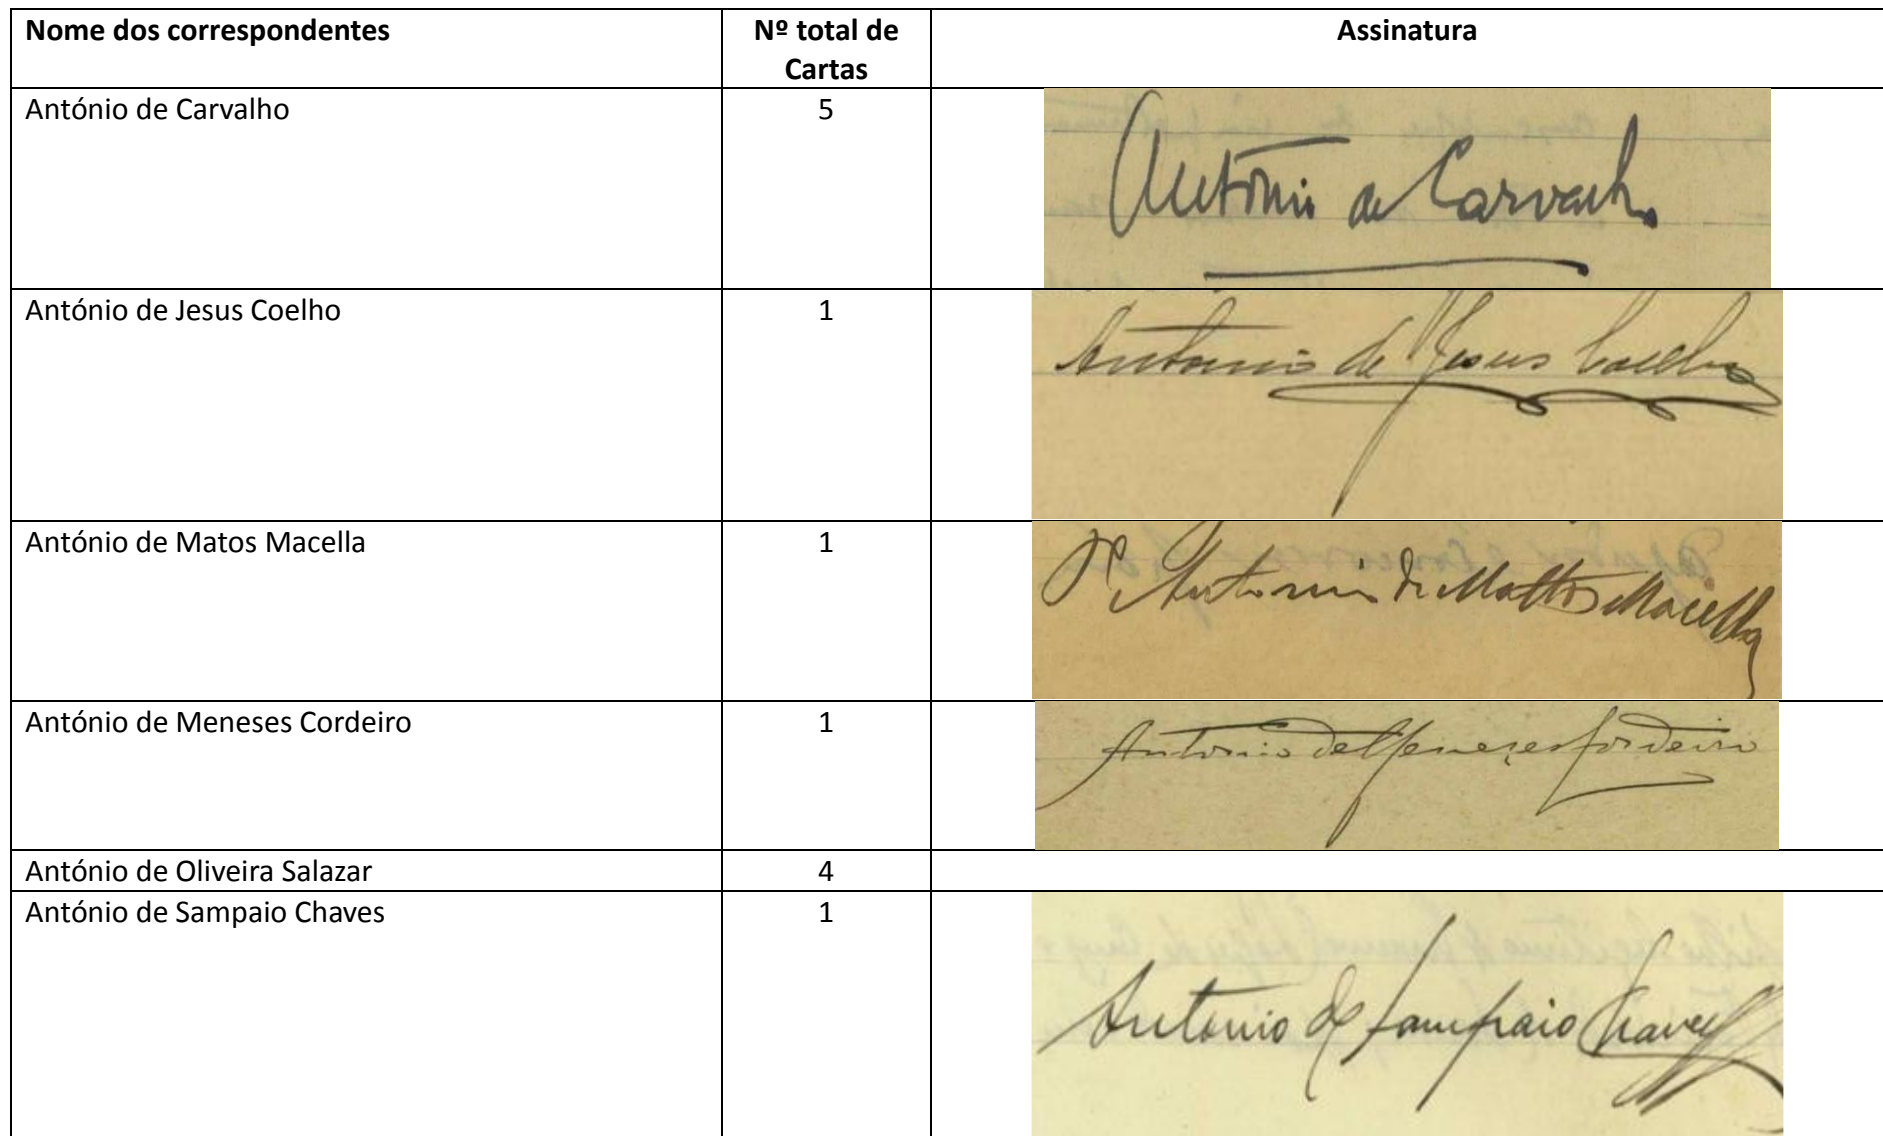 Nome dos correspondentes
Nº total de
Cartas
Assinatura
António de Carvalho
5
António de Carvalho
António de Jesus Coelho
1
Antonio de Jesus Coelho
António de Matos Macella
1
P.e Antonio de Mattos Macella
António de Meneses Cordeiro
1
Antonio de Menezes Cordeiro
António de Oliveira Salazar
4
António de Sampaio Chaves
1
Antonio de Sampaio Chaves